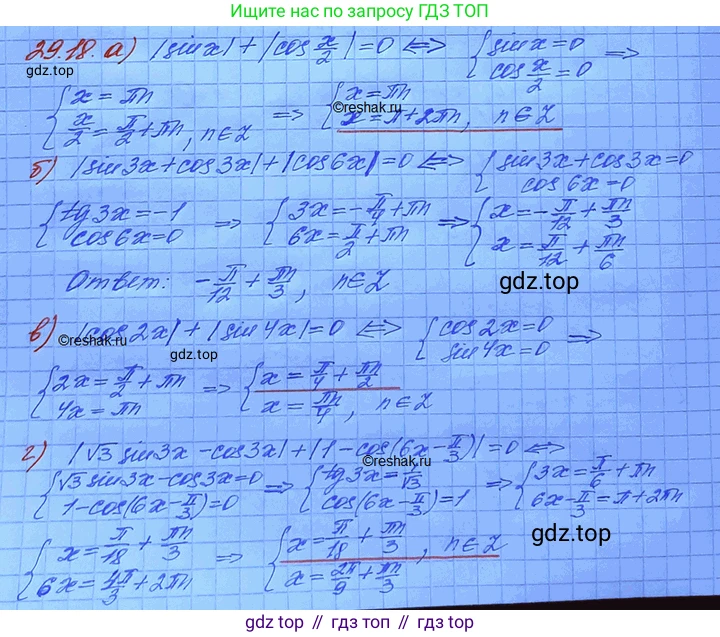 Ищите нас по запросу ГДЗ ТОП
29.18. а) |sin x| + |cos x/2| = 0 ⟺ { sin x = 0 cos x/2 = 0 ⟹
gdz.top
{ x = πn x/2 = π/2 + πn, n∈Z ⟹ { x = πn x = π + 2πn, n∈Z
©reshak.ru
б) |sin 3x + cos 3x| + |cos 6x| = 0 ⟺ { sin 3x + cos 3x = 0 cos 6x = 0
{ tg 3x = -1 cos 6x = 0 ⟹ { 3x = -π/4 + πn 6x = π/2 + πn ⟹ { x = -π/12 + πn/3 x = π/12 + πn/6
Ответ: -π/12 + πn/3, n∈Z
gdz.top
в) |cos 2x| + |sin 4x| = 0 ⟺ { cos 2x = 0 sin 4x = 0 ⟹
©reshak.ru
gdz.top
{ 2x = π/2 + πn 4x = πn ⟹ { x = π/4 + πn/2 x = πn/4, n∈Z
г) |√3 sin 3x - cos 3x| + |1 - cos(6x - π/3)| = 0 ⟺
©reshak.ru
{ √3 sin 3x - cos 3x = 0 1 - cos(6x - π/3) = 0 ⟹ { tg 3x = 1/√3 cos(6x - π/3) = 1 ⟹ { 3x = π/6 + πn 6x - π/3 = π + 2πn
gdz.top
{ x = π/18 + πn/3 6x = 4π/3 + 2πn ⟹ { x = π/18 + πn/3, n∈Z x = 2π/9 + πn/3
gdz.top // гдз.топ // gdz.top // гдз.топ